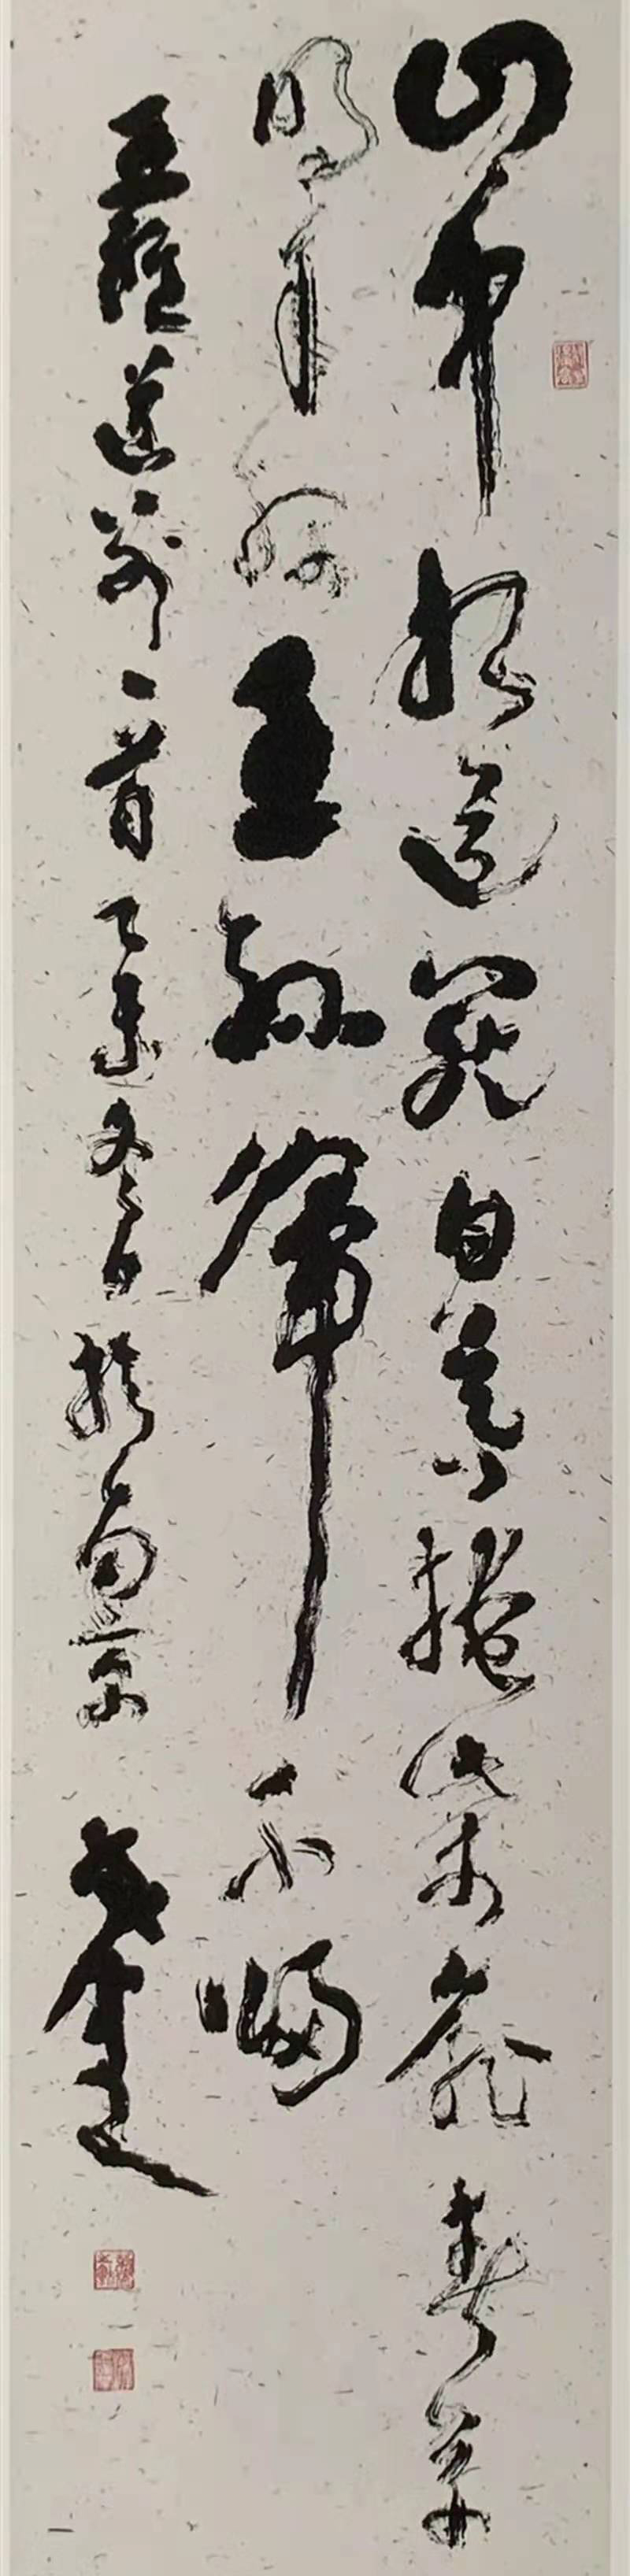 山中相送罷日暮掩柴扉春草
明年綠王孫歸不歸
王維送別一首乙未冬日於南京